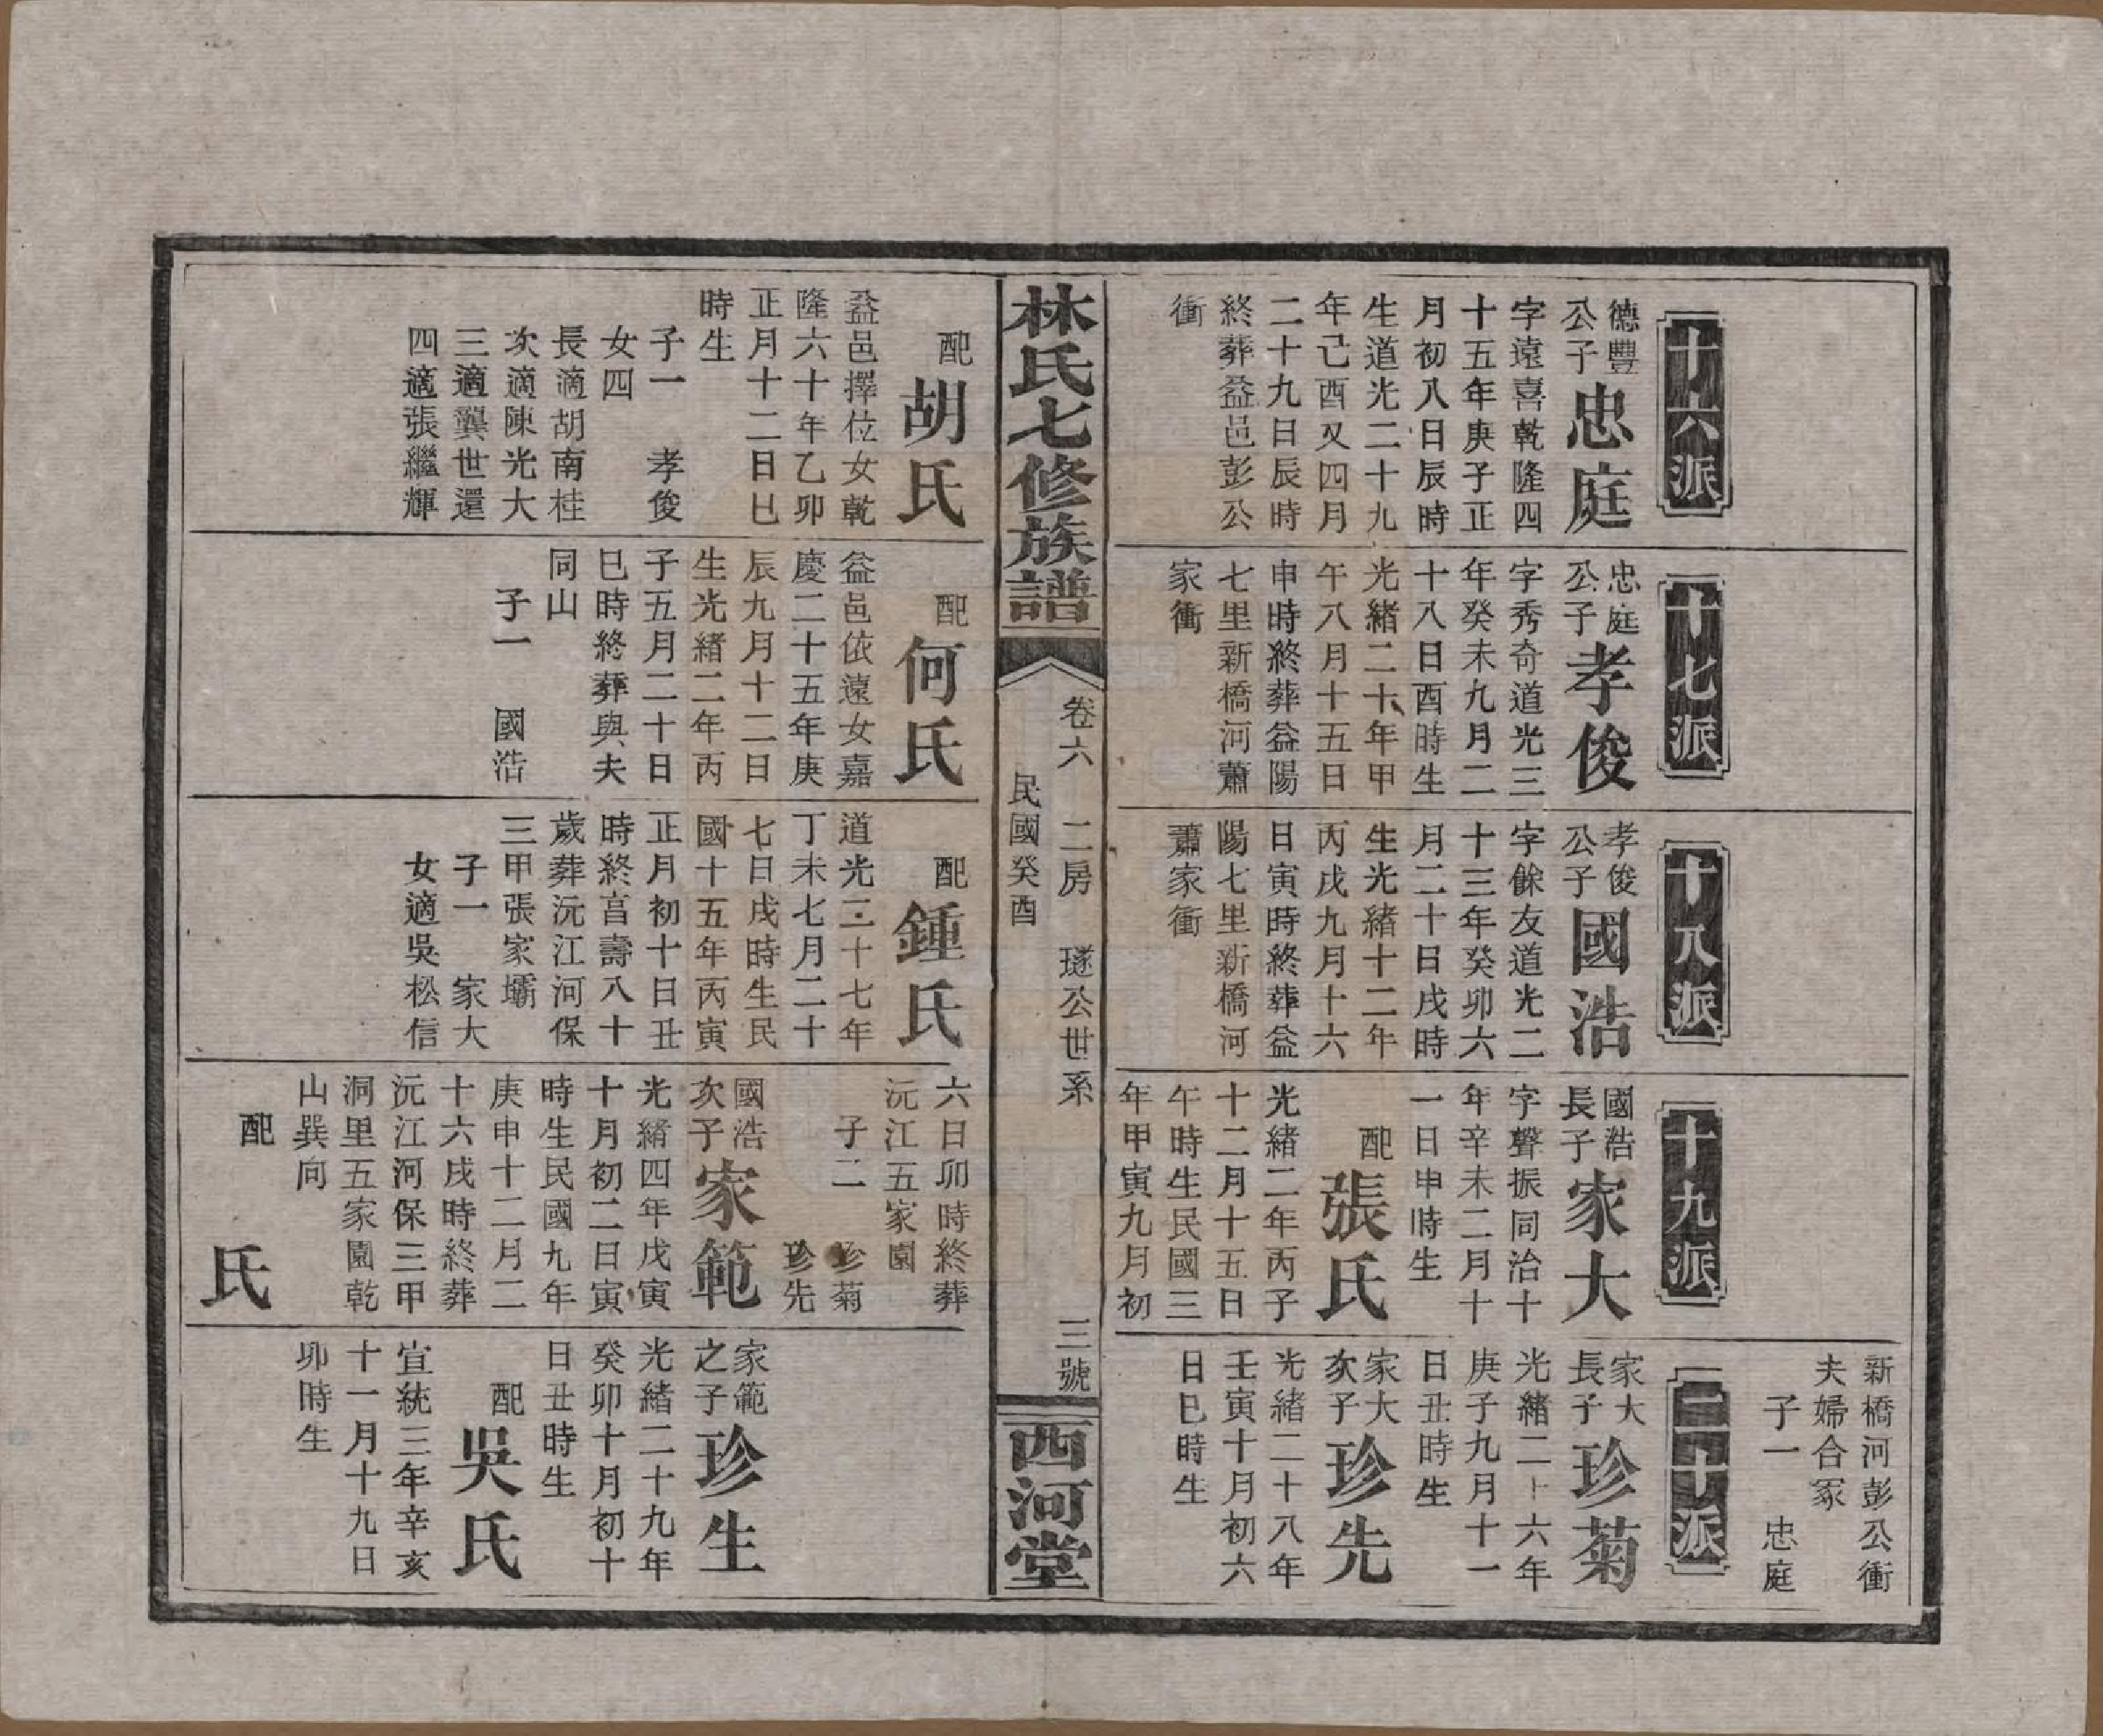 新橋河彭公衝
夫婦合冢
子一 忠庭
十六派
德豐
公子
忠庭
字遠喜乾隆四
十五年庚子正
月初八日辰時
生道光二十九
年己酉又四月
二十九日辰時
終葬益邑彭公
衝
十七派
忠庭
公子
孝俊
字秀奇道光三
年癸未九月二
十八日酉時生
光緒二十年甲
午八月十五日
申時終葬益陽
七里新橋河蕭
家衝
十八派
孝俊
公子
國浩
字餘友道光二
十三年癸卯六
月二十日戌時
生光緒十二年
丙戌九月十六
日寅時終葬益
陽七里新橋河
蕭家衝
十九派
國浩
長子
家大
字聲振同治十
年辛未二月十
一日申時生
配
張氏
光緒二年丙子
十二月十五日
午時生民國三
年甲寅九月初
二十派
家大
長子
珍菊
光緒二十六年
庚子九月十一
日丑時生
家大
次子
珍先
光緒二十八年
壬寅十月初六
日巳時生
林氏七修族譜
卷六 二房 璲公世系 三號
民國癸酉
西河堂
配
胡氏
益邑擇位女乾
隆六十年乙卯
正月十二日巳
時生
子一 孝俊
女四
長適胡南桂
次適陳光大
三適龔世還
四適張繼輝
配
何氏
益邑依遠女嘉
慶二十五年庚
辰九月十二日
生光緒二年丙
子五月二十日
巳時終葬與夫
同山
子一 國浩
配
鍾氏
道光二十七年
丁未七月二十
七日戌時生民
國十五年丙寅
正月初十日丑
時終亯壽八十
歲葬沅江河保
三甲張家壩
子一 家大
女適吳松信
六日卯時終葬
沅江五家園
子二 珍菊
珍先
國浩
次子
家範
光緒四年戊寅
十月初二日寅
時生民國九年
庚申十二月二
十六戌時終葬
沅江河保三甲
洞里五家園乾
山巽向
配
氏
家範
之子
珍生
光緒二十九年
癸卯十月初十
日丑時生
配
吳氏
宣統三年辛亥
十一月十九日
卯時生